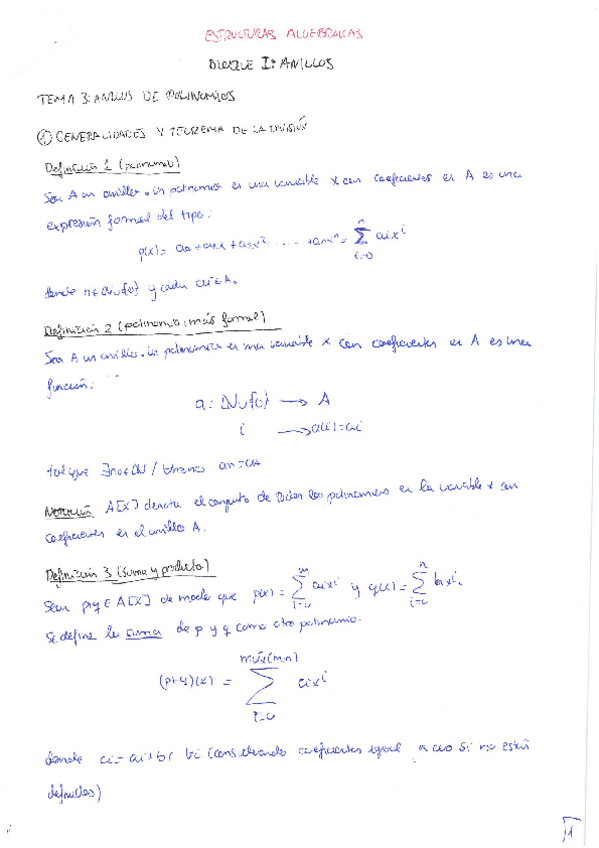 ESTRUCTURAS ALGEBRAICAS
BLOQUE I: ANILLOS
TEMA 3: ANILLOS DE POLINOMIOS
① GENERALIDADES Y TEOREMA DE LA DIVISIÓN
Definición 1 (polinomio)
Sea A un anillo. Un polinomio en una variable x con coeficientes en A es una
expresión formal del tipo:
p(x) = a₀ + a₁x + a₂x² ..... + aₙxⁿ = Σ_{i=0}^{n} aᵢxⁱ
donde n∈ℕ∪{0} y cada aᵢ∈A.
Definición 2 (polinomio, más formal)
Sea A un anillo. Un polinomio en una variable x con coeficientes en A es una
función:
a: ℕ∪{0} → A
i → a(i)=aᵢ
tal que ∃n₀∈ℕ / ∀n≥n₀ aₙ=0A
Notación A[X] denota el conjunto de todos los polinomios en la variable x con
coeficientes en el anillo A.
Definición 3 (suma y producto)
Sean p,q ∈ A[X] de modo que p(x) = Σ_{i=0}^{m} aᵢxⁱ y q(x) = Σ_{i=0}^{n} bᵢxⁱ.
Se define la suma de p y q como otro polinomio.
(p+q)(x) = Σ_{i=0}^{máx(m,n)} cᵢxⁱ
donde cᵢ = aᵢ + bᵢ ∀i (considerando coeficientes igual a cero si no están
definidos)